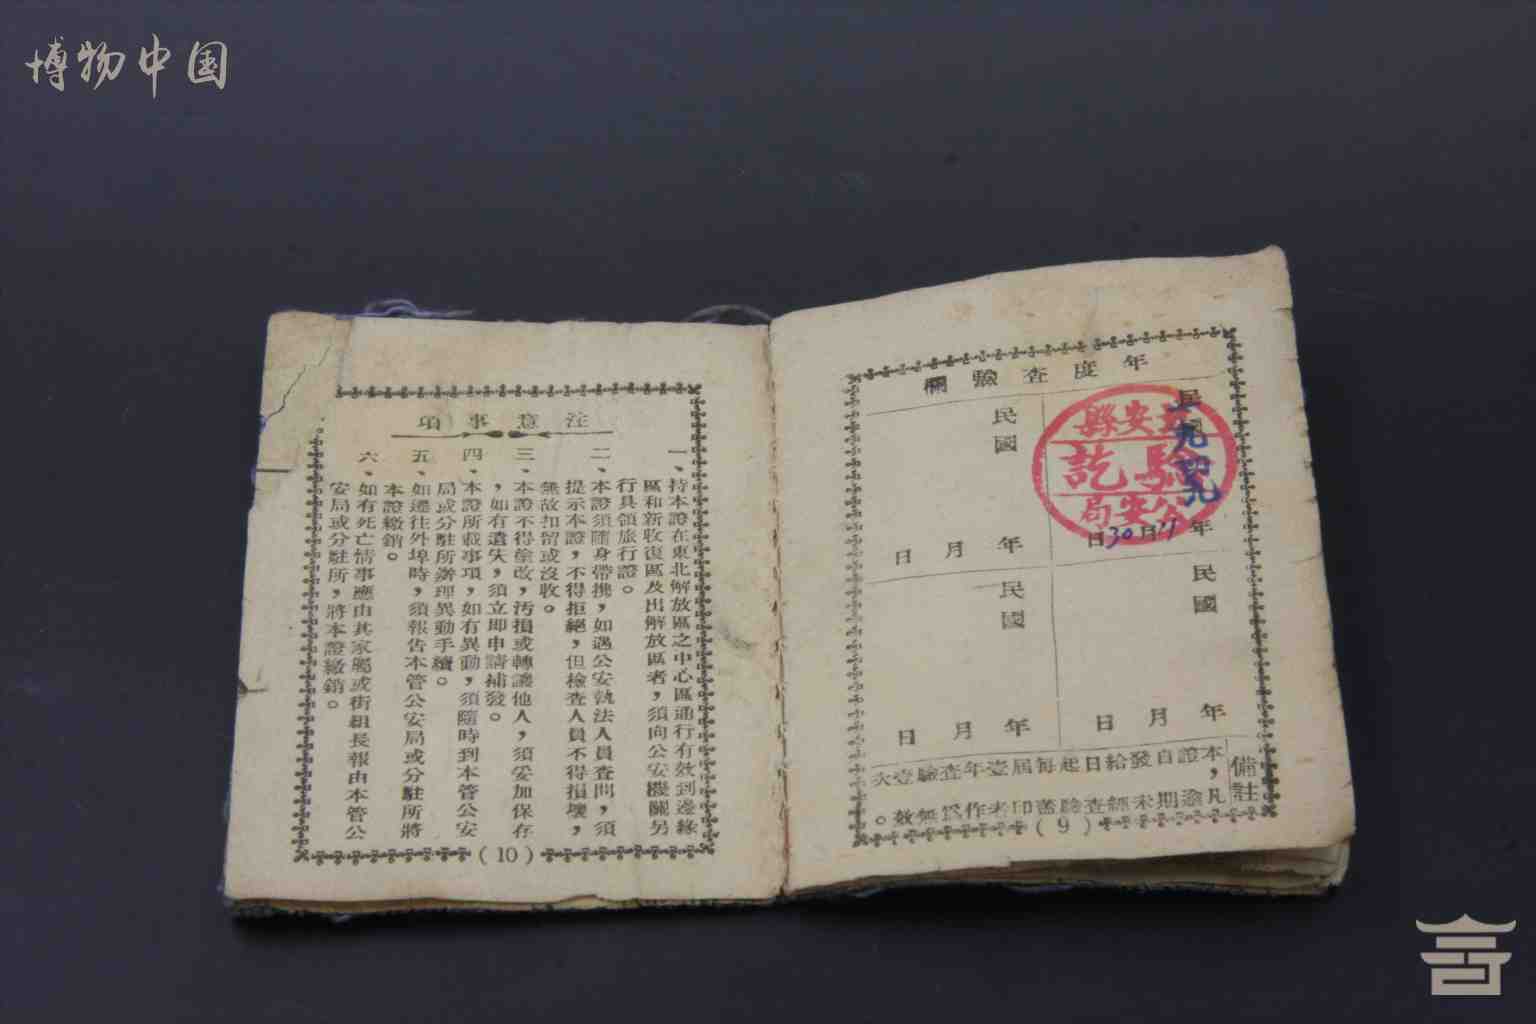 博物中国
年度查驗欄
民國
一九四九
年11月30日
安縣
驗訖
公安局
民國
年月日
民國
年月日
民國
年月日
備註
本證自發給日起每屆壹年查驗壹次
，凡逾期未經查驗蓋印者作爲無效。
(9)
注意事項
一、持本證在東北解放區之中心區通行有效到邊緣
區和新收復區及出解放區者，須向公安機關另
行具領旅行證。
二、本證須隨身帶携，如遇公安執法人員查問，須
提示本證，不得拒絕，但檢查人員不得損壞，
無故扣留或沒收。
三、本證不得塗改，汚損或轉讓他人，須妥加保存
，如有遺失，須立即申請補發。
四、本證所載事項，如有異動，須隨時到本管公安
局或分駐所辦理異動手續。
五、如遷往外埠時，須報告本管公安局或分駐所將
本證繳銷。
六、如有死亡情事應由其家屬或街組長報由本管公
安局或分駐所，將本證繳銷。
(10)